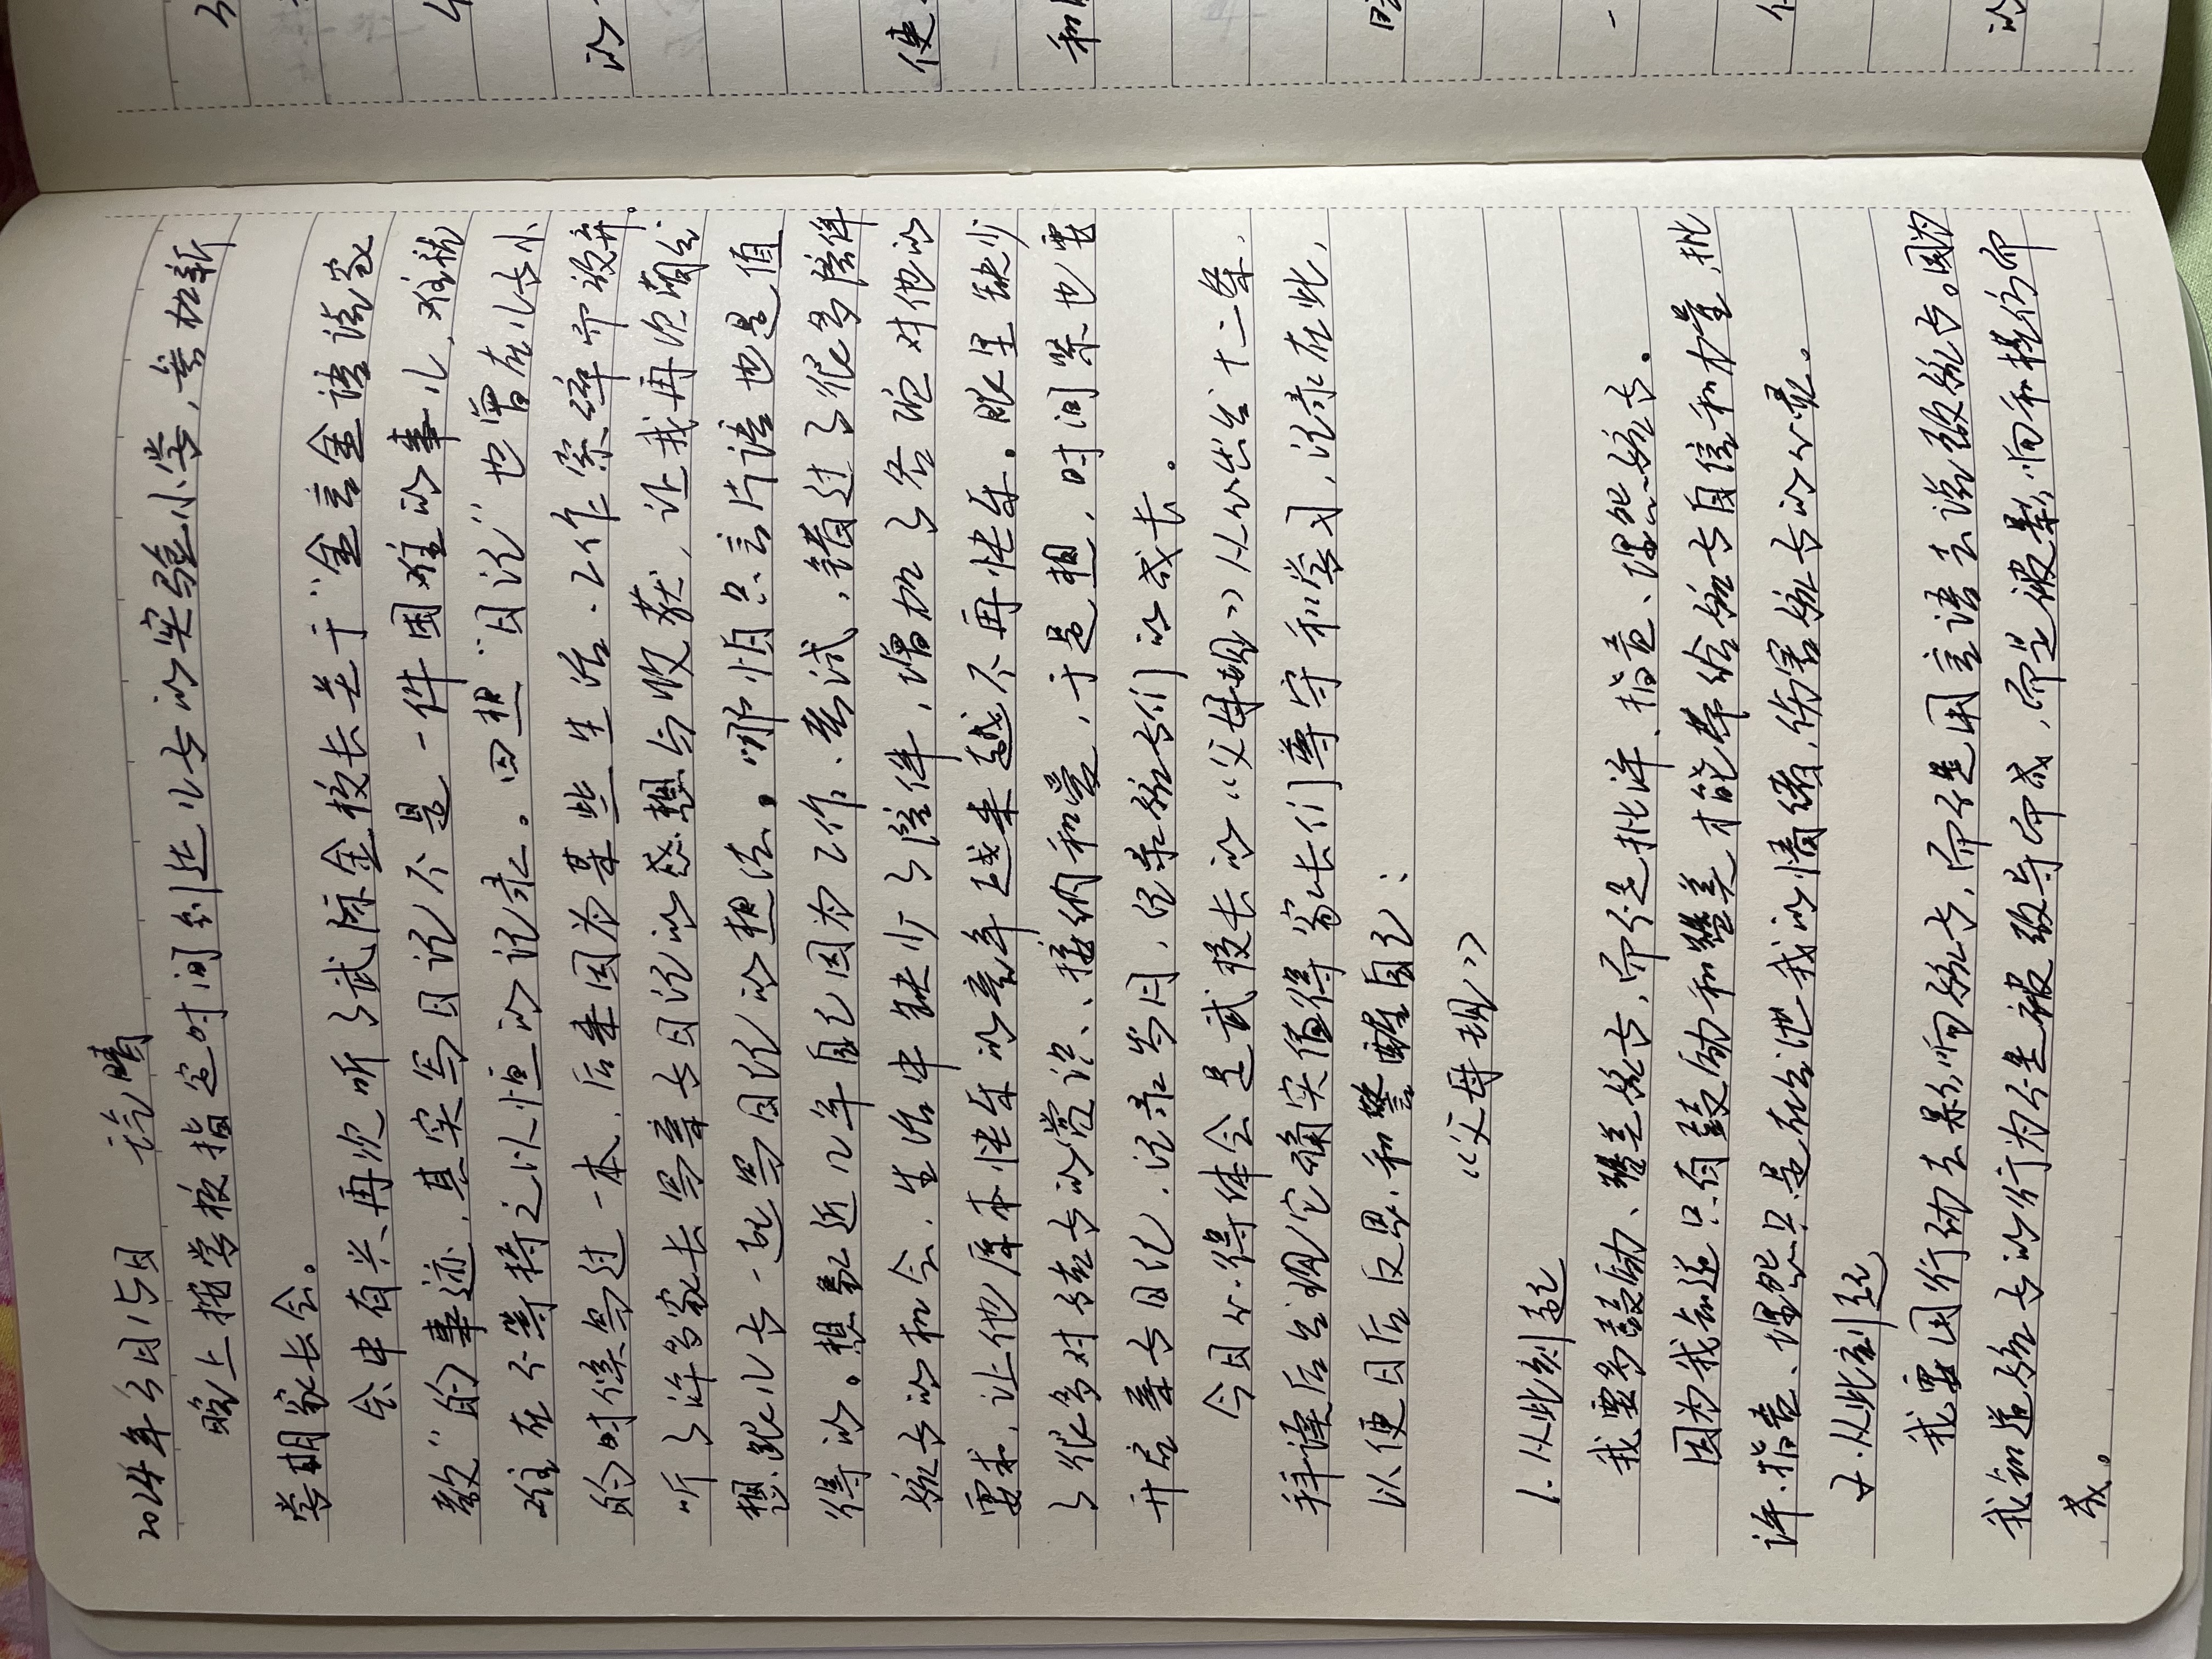 2024年3月15日 天气晴
晚上按学校指定时间到达儿子的实验小学,参加新
学期家长会。
会中有兴再次听了武际金校长关于“金言金语谈家
教”的事迹,其实写日记不是一件困难的事儿,难就
难在不等持之以恒的记录。回想“日记”也曾在儿子小
的时候写过一本,后来因为某些生活、工作琐碎而放弃。
听了许多家长写亲子日记的感想与收获,让我再次萌生
想跟儿子一起写日记的想法。哪怕只言片语也是值
得的。想想近几年自己因为工作、考试,错过了很多陪伴
孩子的和令,生活中缺少了陪伴,增加了各咱对他的
要求,让他原本快乐的童年越来越不再快乐。眼里缺少
了很多对孩子的赏识、接纳和爱,于是想,时间紧也要
开启亲子日记,记录岁月,记录孩子们的成长。
今日心得体会是武校长的《父母规》从心出发十二条,
拜读后发现它确实值得家长们尊守和学习,记录在此,
以便日后反思和警醒自己:
《父母规》
1.从此刻起
我要多鼓励、赞美孩子,而不是批评、指责、埋怨孩子。
因为我知道只有鼓励和赞美才能带给孩子自信和力量,批
评、指责、埋怨只是在发泄我的情绪,伤害孩子的心灵。
2.从此刻起
我要用行动去影响孩子,而不是用言语去说教孩子。因为
我知道孩子的行为不是被教导而成,而是被影响和模仿而
成。